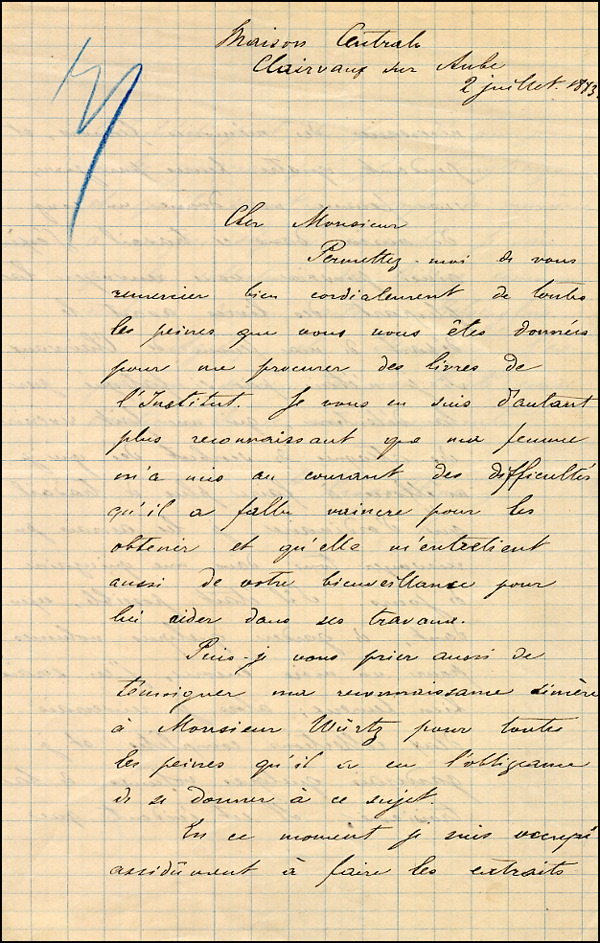 Maison Centrale
Clairvaux sur Aube
2 juillet. 1883.
Cher Monsieur
Permettez-moi de vous
remercier bien cordialement de toutes
les peines que vous vous êtes données
pour me procurer des livres de
l'Institut. Je vous en suis d'autant
plus reconnaissant que ma femme
m'a mis au courant des difficultés
qu'il a fallu vaincre pour les
obtenir et qu'elle m'entretient
aussi de votre bienveillance pour
lui aider dans ses travaux.
Puis-je vous prier aussi de
témoigner ma reconnaissance sincère
à Monsieur Würtz pour toutes
les peines qu'il a eu l'obligeance
de se donner à ce sujet.
En ce moment je suis occupé
assidûment à faire les extraits